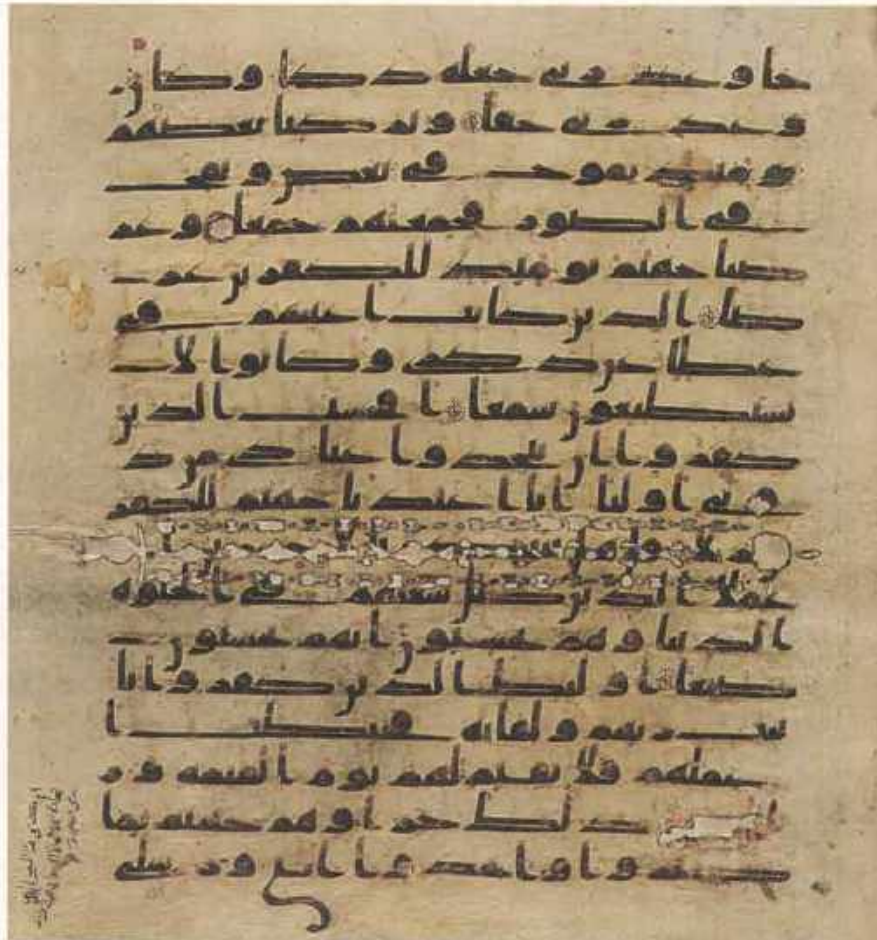 جا وعد ربى جعله دكا وكان
وعد ربى حقا وتركنا بعضهم
يومئذ يموج فى بعض ونفخ
فى الصور فجمعنهم جمعا وعر
ضنا جهنم يومئذ للكفرين عر
ضا الذين كانت اعينهم فى
غطا عن ذكرى وكانوا لا
يستطيعون سمعا افحسب الذين
كفروا ان يتخذوا عبادى من د
ونى اوليا انا اعتدنا جهنم للكفرين
نزلا قل هل ننبئكم بالاخسرين ا
عملا الذين ضل سعيهم فى الحيوه
الدنيا وهم يحسبون انهم يحسنون
صنعا اولئك الذين كفروا بايا
ت ربهم ولقايه فحبطت ا
عملهم فلا نقيم لهم يوم القيمه وز
نا ذلك جزاوهم جهنم بما
كفروا واتخذوا ايتى ورسلى